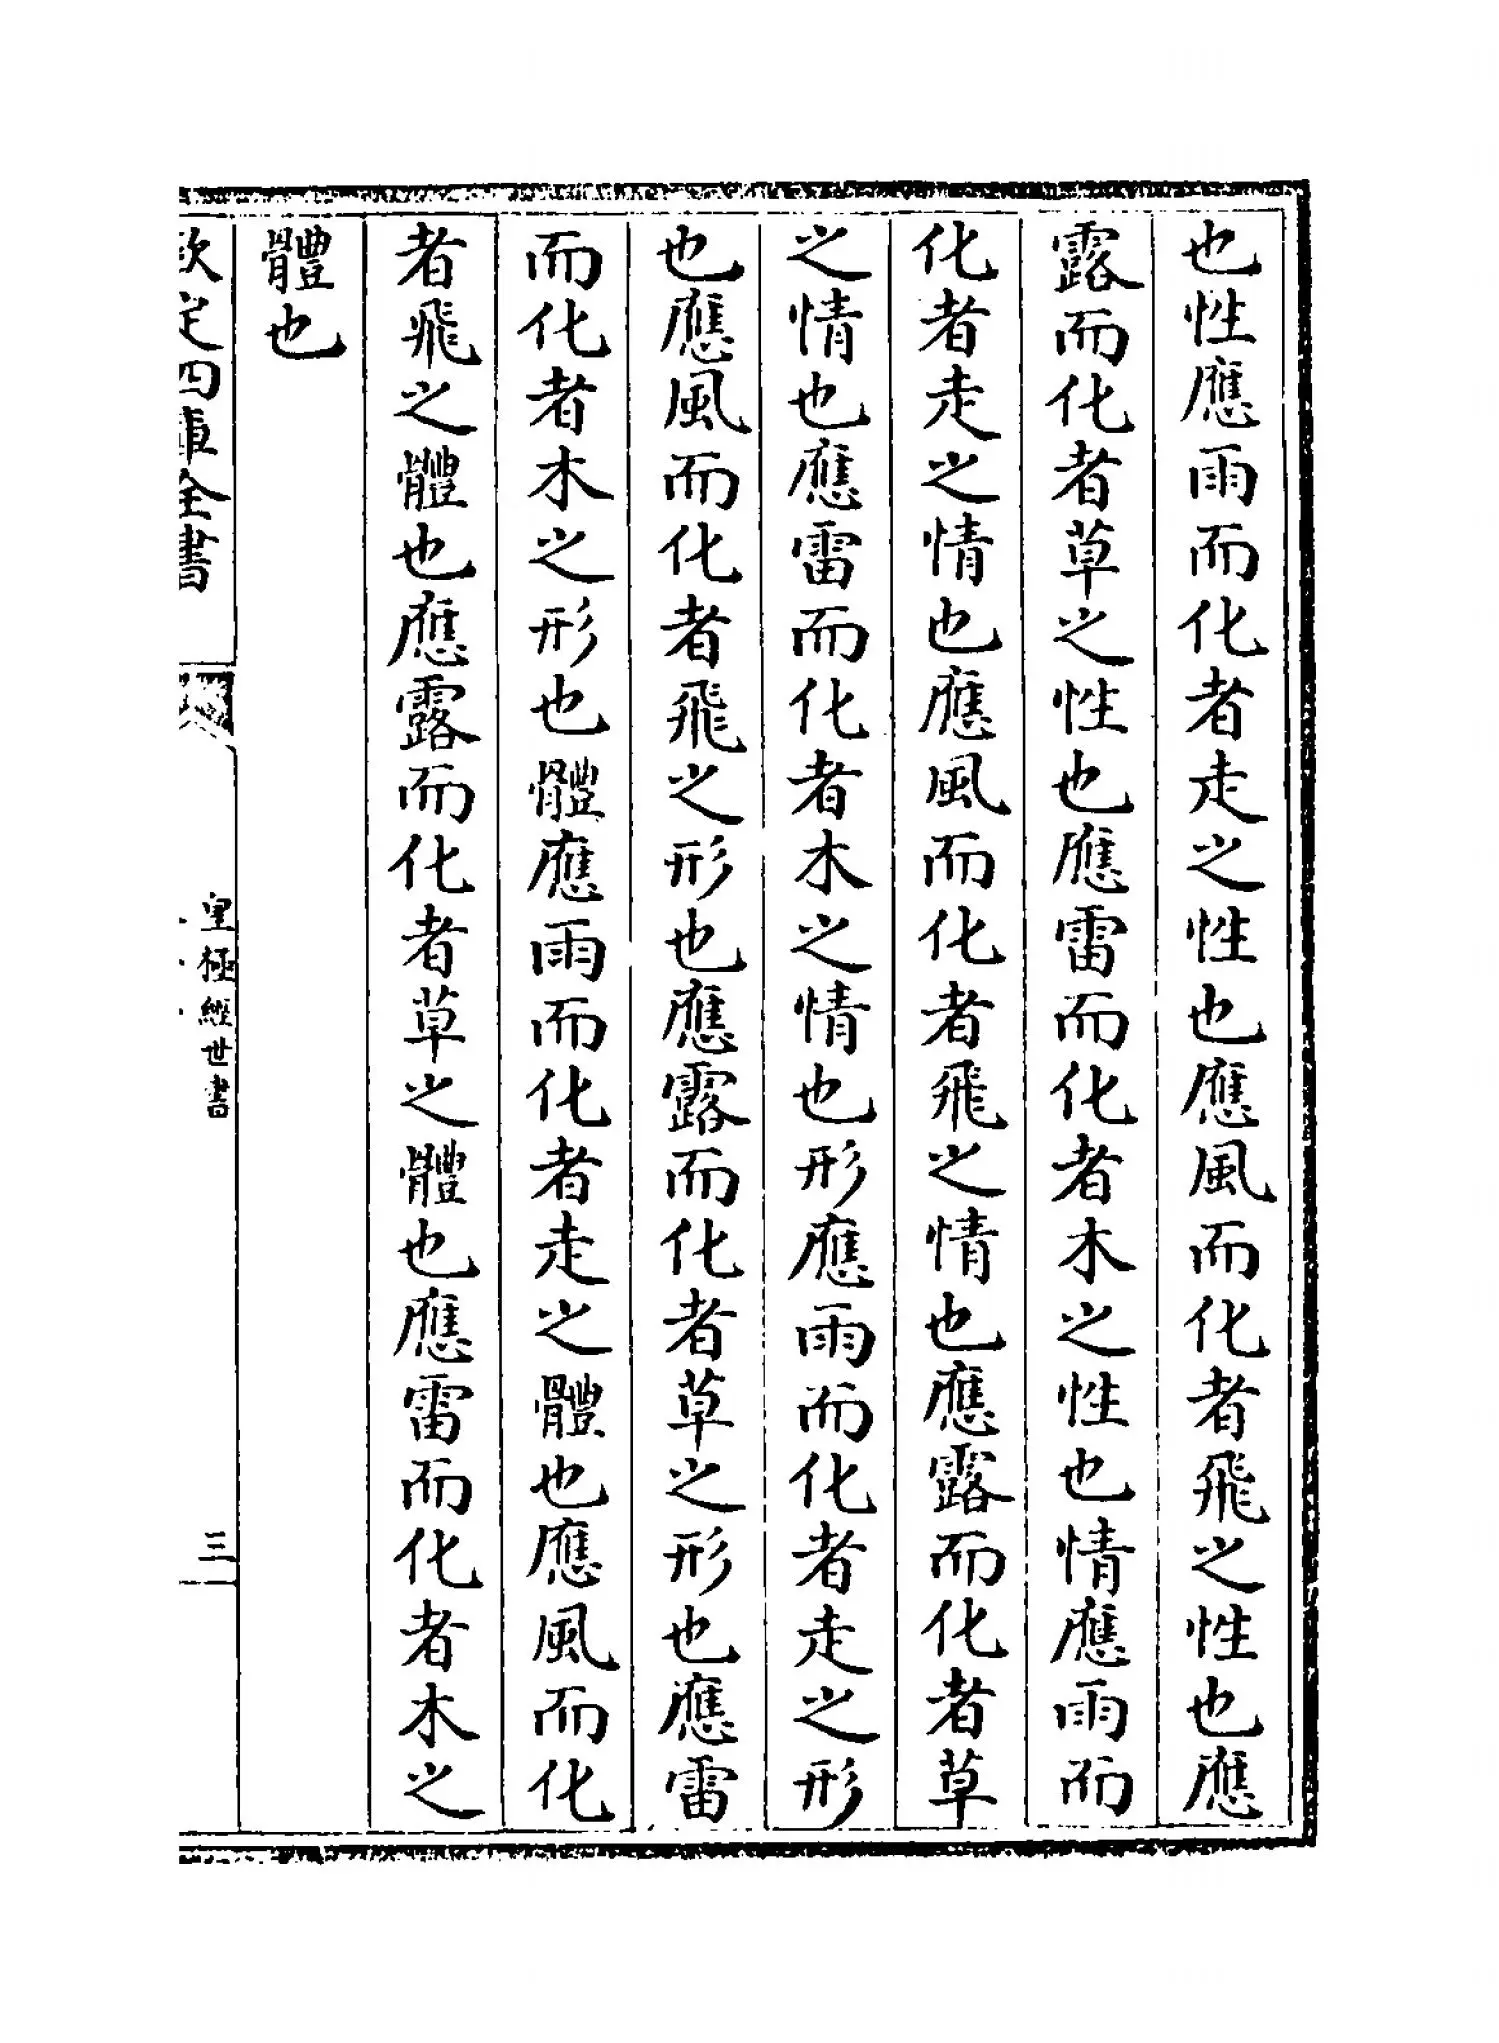 也性應雨而化者走之性也應風而化者飛之性也應
露而化者草之性也應雷而化者木之性也情應雨而
化者走之情也應風而化者飛之情也應露而化者草
之情也應雷而化者木之情也形應雨而化者走之形
也應風而化者飛之形也應露而化者草之形也應雷
而化者木之形也體應雨而化者走之體也應風而化
者飛之體也應露而化者草之體也應雷而化者木之
體也
欽定四庫全書
皇極經世書
三